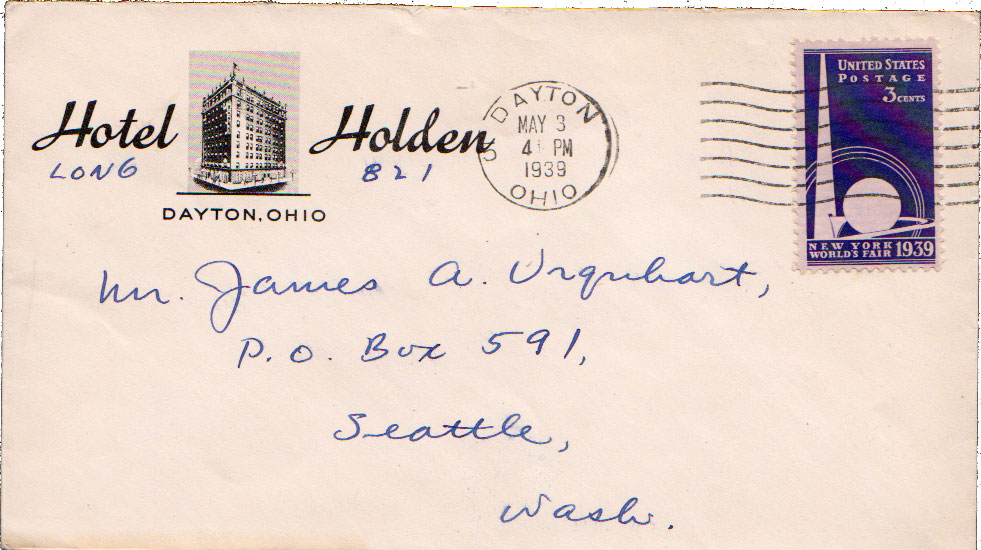 Hotel Holden
LONG 821
DAYTON, OHIO
DAYTON
MAY 3
4 PM
1939
OHIO
UNITED STATES
POSTAGE
3 CENTS
NEW YORK
WORLD'S FAIR 1939
Mr. James A. Urquhart,
P.O. Box 591,
Seattle,
Wash.